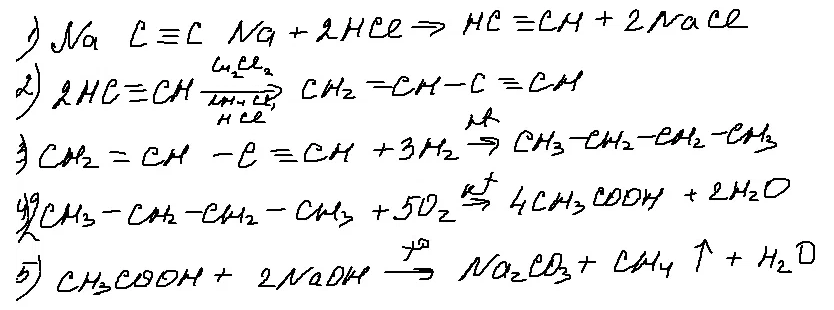 1) Na C≡C Na + 2HCl ⇒ HC≡CH + 2NaCl
2) 2HC≡CH Cu2Cl2 NH4Cl, HCl → CH2=CH-C≡CH
3) CH2=CH-C≡CH + 3H2 → CH3-CH2-CH2-CH3
4) 2CH3-CH2-CH2-CH3 + 5O2 ⇒ 4CH3COOH + 2H2O
5) CH3COOH + 2NaOH t° → Na2CO3 + CH4↑ + H2O